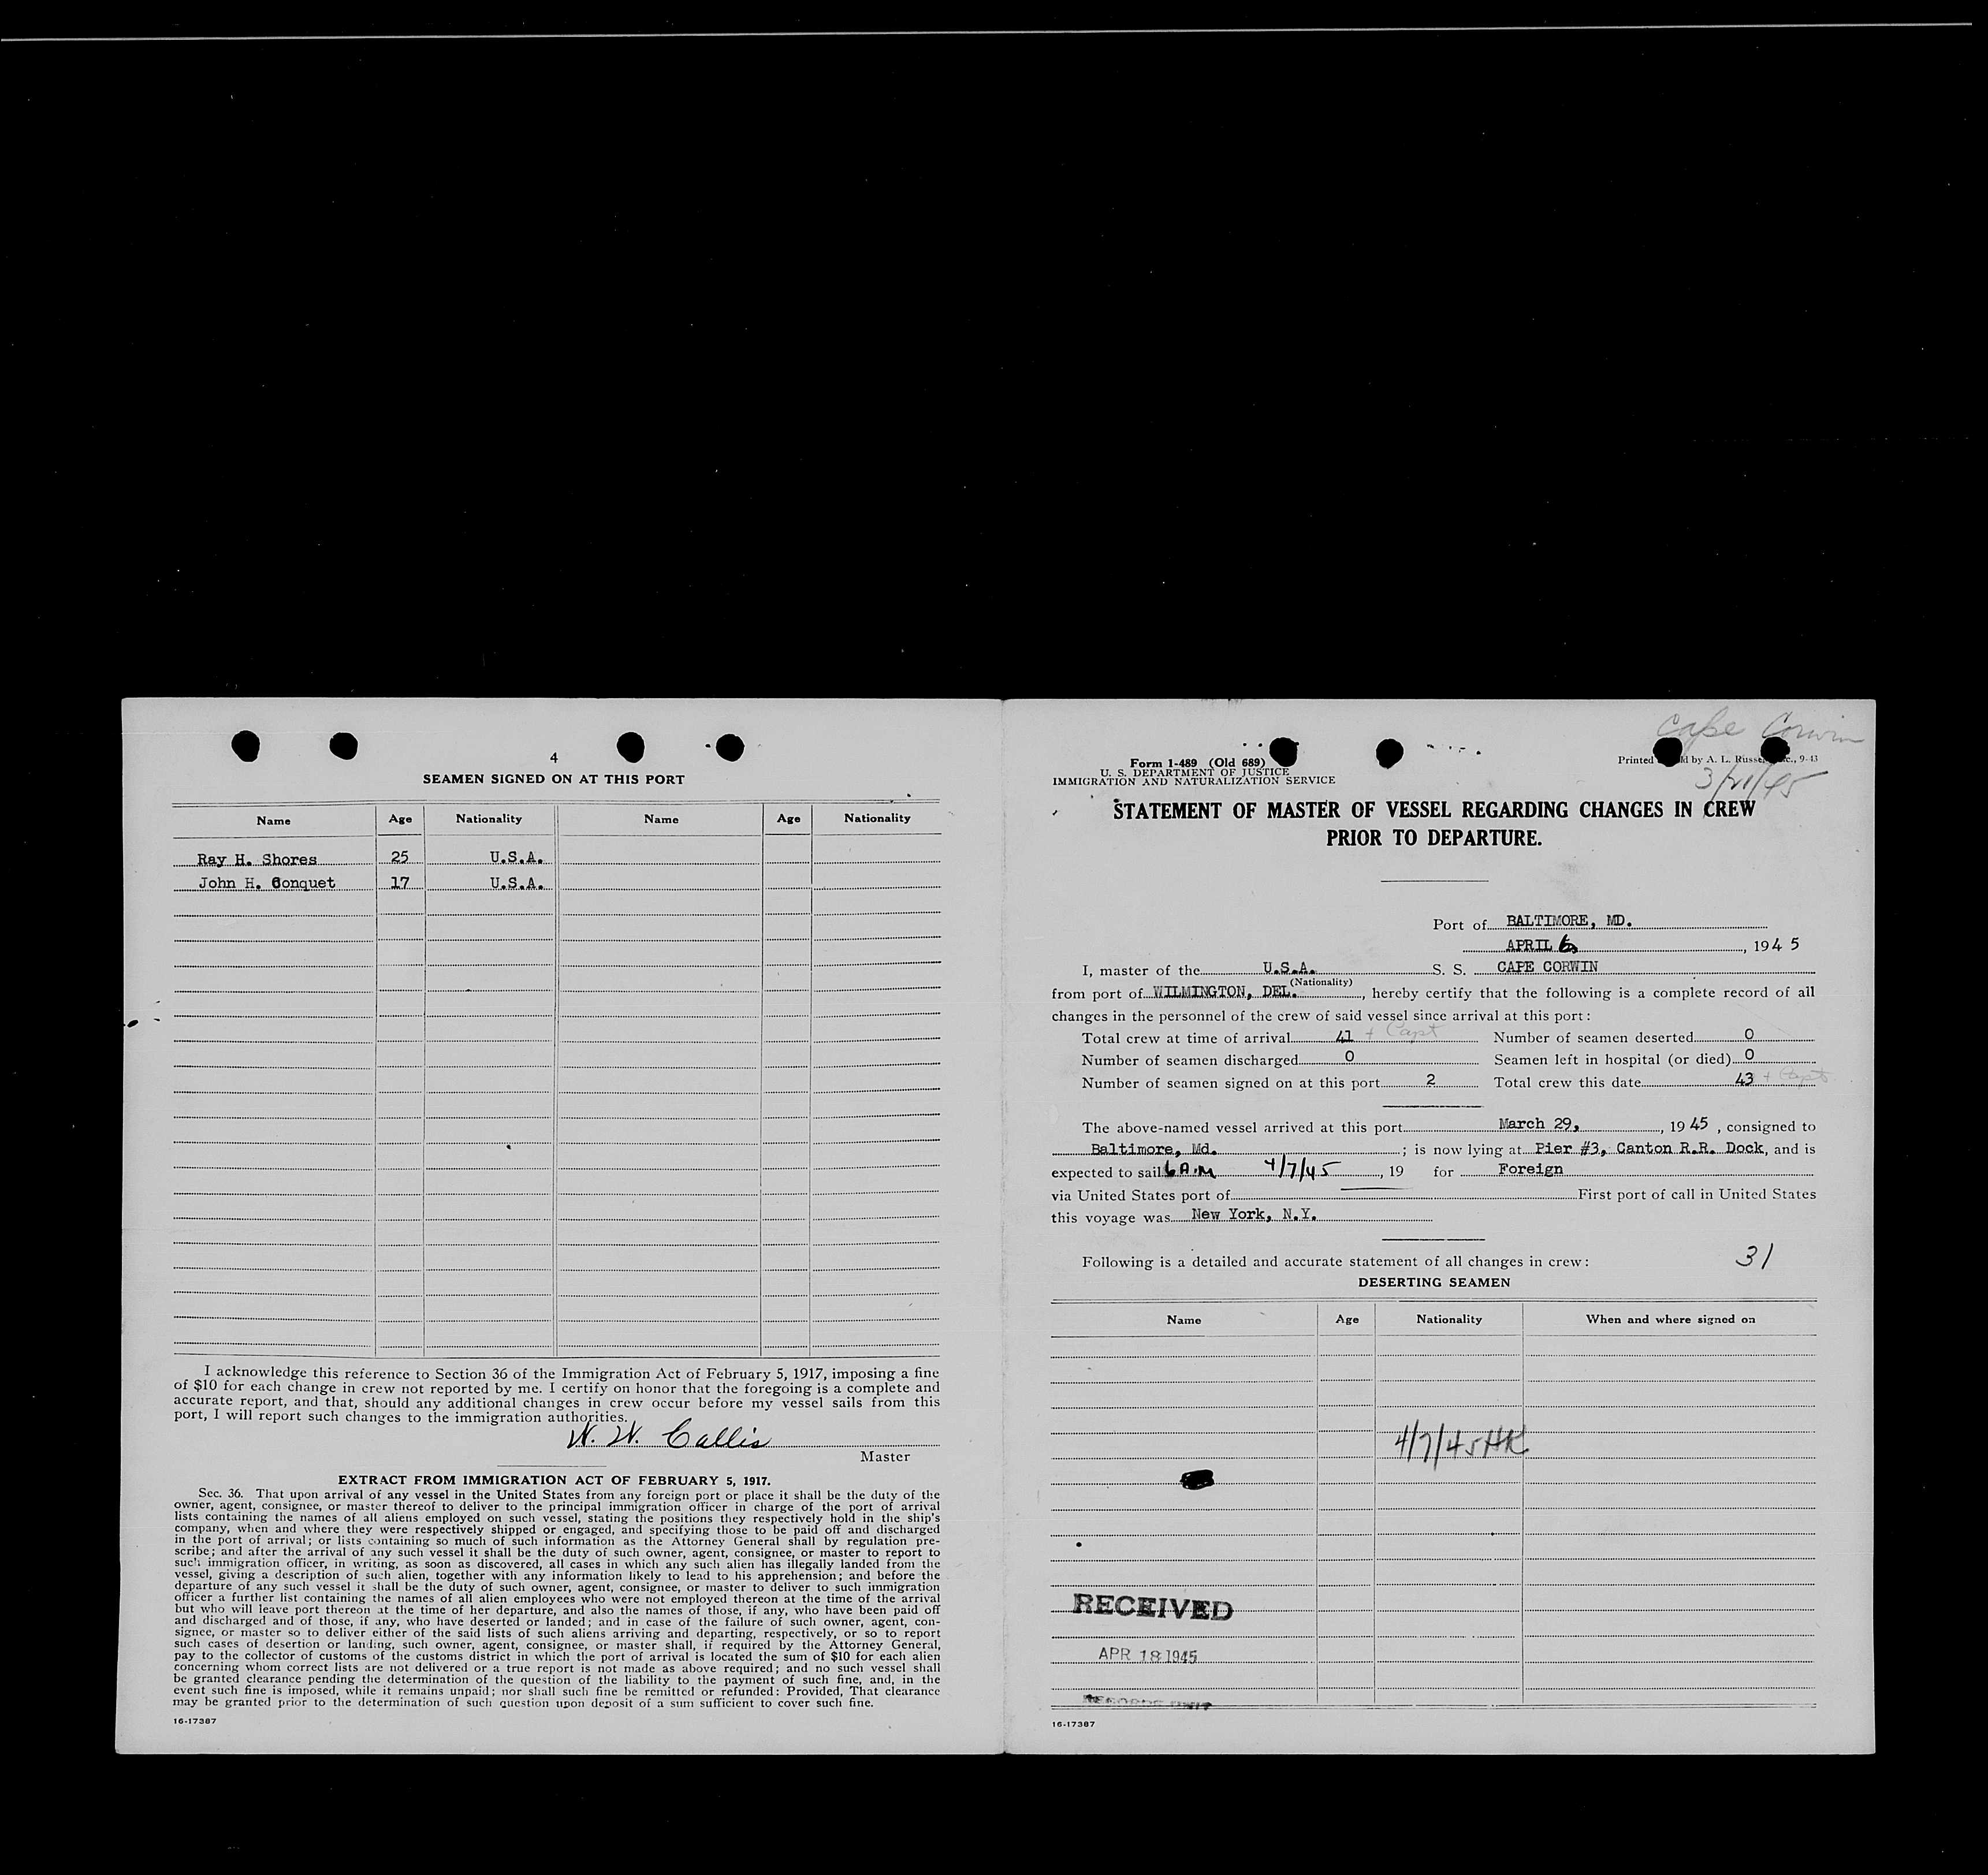 4
SEAMEN SIGNED ON AT THIS PORT
Name Age Nationality Name Age Nationality
Ray H. Shores 25 U.S.A.
John H. Conquet 17 U.S.A.
I acknowledge this reference to Section 36 of the Immigration Act of February 5, 1917, imposing a fine
of $10 for each change in crew not reported by me. I certify on honor that the foregoing is a complete and
accurate report, and that, should any additional changes in crew occur before my vessel sails from this
port, I will report such changes to the immigration authorities.
W. W. Callis
Master
EXTRACT FROM IMMIGRATION ACT OF FEBRUARY 5, 1917.
Sec. 36. That upon arrival of any vessel in the United States from any foreign port or place it shall be the duty of the
owner, agent, consignee, or master thereof to deliver to the principal immigration officer in charge of the port of arrival
lists containing the names of all aliens employed on such vessel, stating the positions they respectively hold in the ship's
company, when and where they were respectively shipped or engaged, and specifying those to be paid off and discharged
in the port of arrival; or lists containing so much of such information as the Attorney General shall by regulation pre-
scribe; and after the arrival of any such vessel it shall be the duty of such owner, agent, consignee, or master to report to
such immigration officer, in writing, as soon as discovered, all cases in which any such alien has illegally landed from the
vessel, giving a description of such alien, together with any information likely to lead to his apprehension; and before the
departure of any such vessel it shall be the duty of such owner, agent, consignee, or master to deliver to such immigration
officer a further list containing the names of all alien employees who were not employed thereon at the time of the arrival
but who will leave port thereon at the time of her departure, and also the names of those, if any, who have been paid off
and discharged and of those, if any, who have deserted or landed; and in case of the failure of such owner, agent, con-
signee, or master so to deliver either of the said lists of such aliens arriving and departing, respectively, or so to report
such cases of desertion or landing, such owner, agent, consignee, or master shall, if required by the Attorney General,
pay to the collector of customs of the customs district in which the port of arrival is located the sum of $10 for each alien
concerning whom correct lists are not delivered or a true report is not made as above required; and no such vessel shall
be granted clearance pending the determination of the question of the liability to the payment of such fine, and, in the
event such fine is imposed, while it remains unpaid; nor shall such fine be remitted or refunded: Provided, That clearance
may be granted prior to the determination of such question upon deposit of a sum sufficient to cover such fine.
16-17387
Cape Corwin
Form 1-489 (Old 689)
U. S. DEPARTMENT OF JUSTICE
IMMIGRATION AND NATURALIZATION SERVICE
Printed by A. L. 9-43
STATEMENT OF MASTER OF VESSEL REGARDING CHANGES IN CREW
PRIOR TO DEPARTURE.
Port of BALTIMORE, MD.
APRIL 6, 1945
I, master of the U.S.A. S. S. CAPE CORWIN
(Nationality)
from port of WILMINGTON, DEL., hereby certify that the following is a complete record of all
changes in the personnel of the crew of said vessel since arrival at this port:
Total crew at time of arrival 41 + Capt Number of seamen deserted 0
Number of seamen discharged 0 Seamen left in hospital (or died) 0
Number of seamen signed on at this port 2 Total crew this date 43 + Capt
The above-named vessel arrived at this port March 29, 1945, consigned to
Baltimore, Md.; is now lying at Pier #3, Canton R.R. Dock, and is
expected to sail 6 A.M 4/7/45, 19 for Foreign
via United States port of First port of call in United States
this voyage was New York, N.Y.
Following is a detailed and accurate statement of all changes in crew: 31
DESERTING SEAMEN
Name Age Nationality When and where signed on
4/7/45 HK
RECEIVED
APR 18 1945
RECORDS UNIT
16-17387